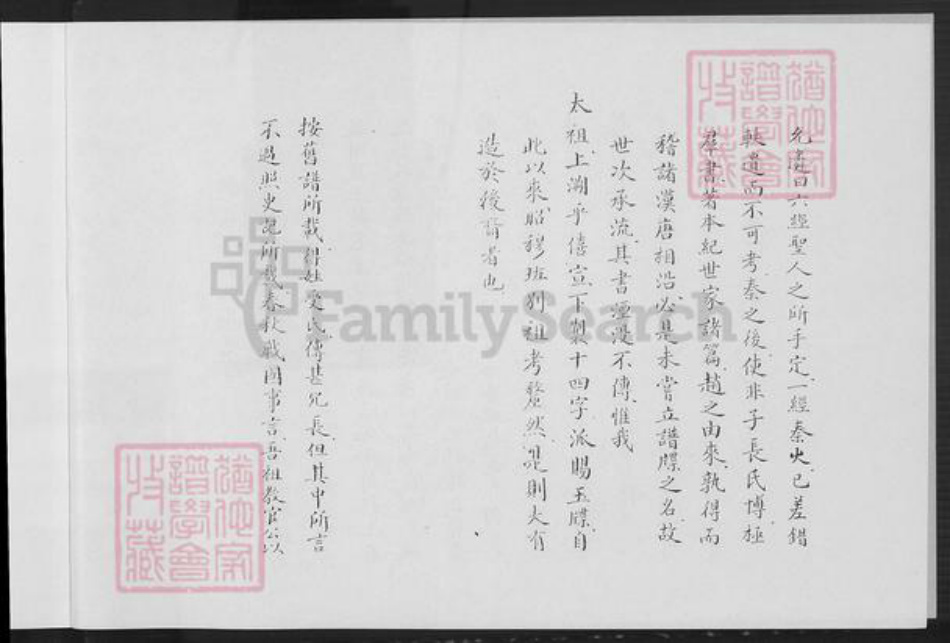 允濤曰六經聖人之所手定一經秦火已差錯
軼遺而不可考秦之後使非子長氏博極
羣書著本紀世家諸篇趙之由來孰得而
稽諸漢唐相沿必是未嘗立譜牒之名故
世次承流其書湮沒不傳惟我
太祖上溯乎僖宣下製十四字派賜玉牒自
此以來昭穆班列祖考釐然是則大有
造於後裔者也
按舊譜所載得姓受氏傳甚冗長但其中所言
不過照史記所載春秋戰國事言吾祖教官公以
譜學會
收藏
FamilySearch
譜學會
收藏